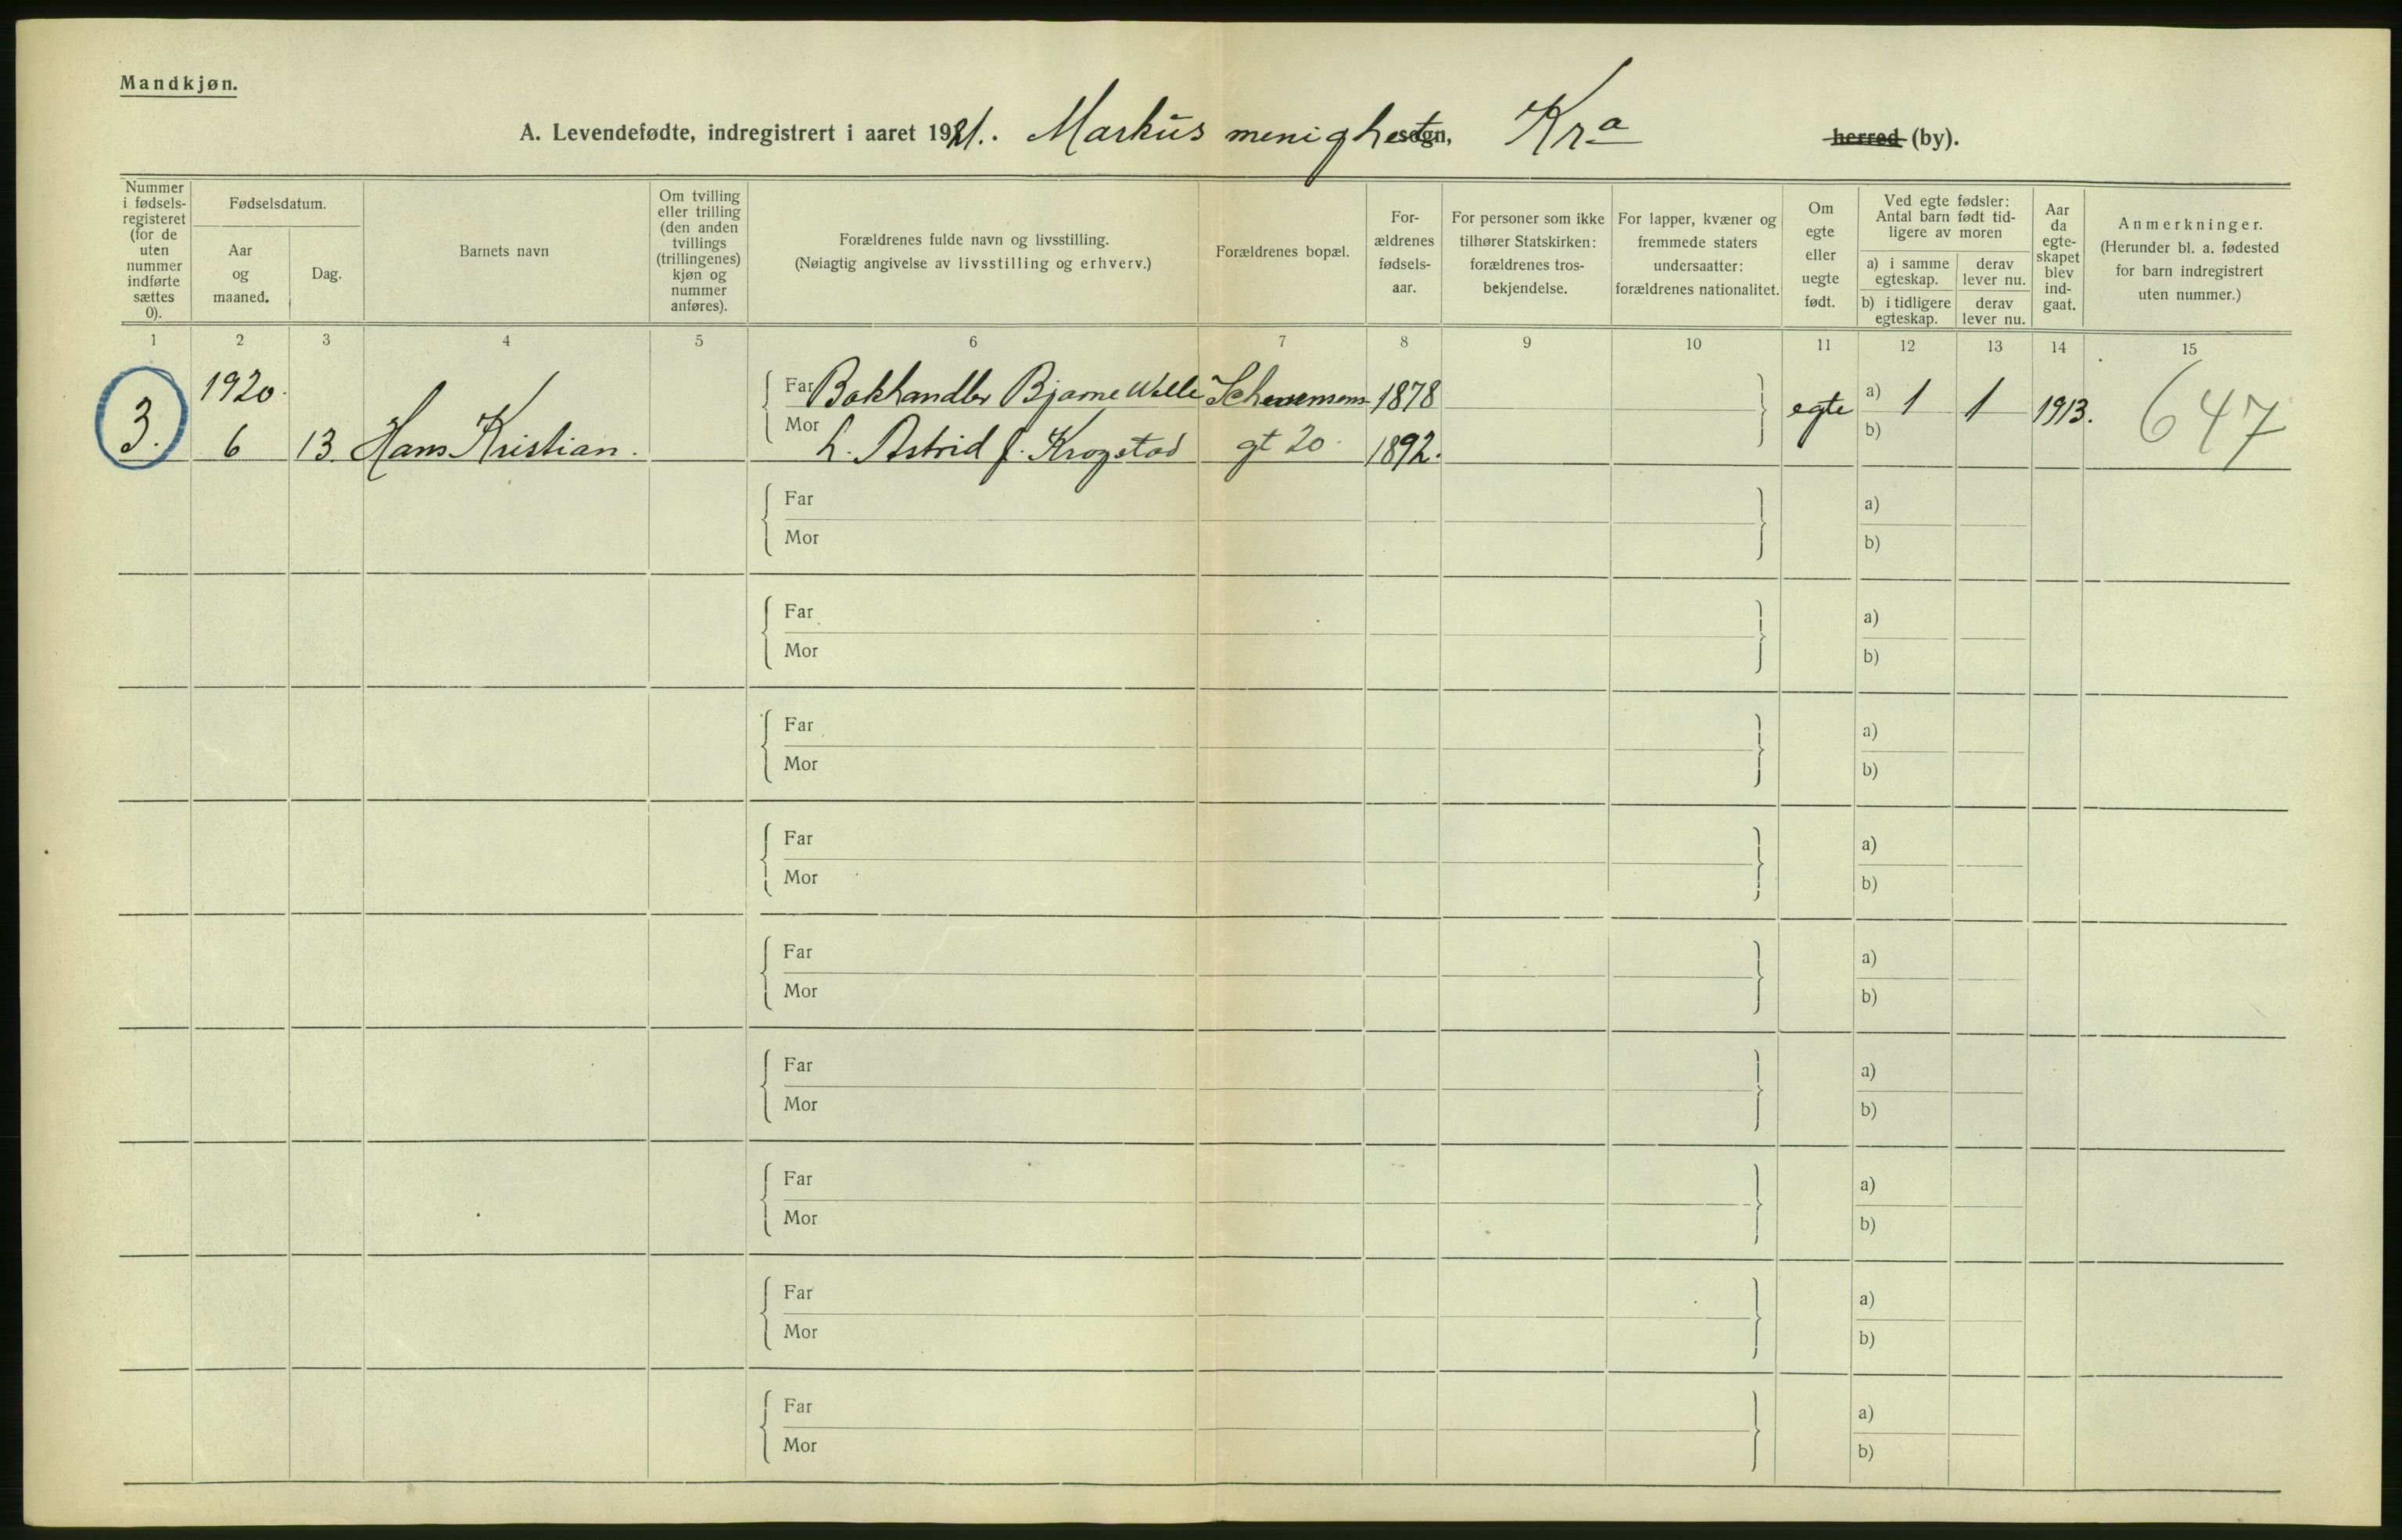 Mandkjøn.
A. Levendefødte, indregistrert i aaret 1921. Markus menighet sogn, Kra herred (by).
Nummer i fødsels-registeret (for de uten nummer indførte sættes 0).
Fødselsdatum.
Aar og maaned.
Dag.
Barnets navn
Om tvilling eller trilling (den anden tvillings (trillingenes) kjøn og nummer anføres).
Forældrenes fulde navn og livsstilling.
(Nøiagtig angivelse av livsstilling og erhverv.)
Forældrenes bopæl.
For-ældrenes fødsels-aar.
For personer som ikke tilhører Statskirken: forældrenes tros-bekjendelse.
For lapper, kvæner og fremmede staters undersaatter: forældrenes nationalitet.
Om egte eller uegte født.
Ved egte fødsler: Antal barn født tid-ligere av moren
a) i samme egteskap.
derav lever nu.
b) i tidligere egteskap.
derav lever nu.
Aar da egte-skapet blev ind-gaat.
Anmerkninger.
(Herunder bl. a. fødested for barn indregistrert uten nummer.)
1 2 3 4 5 6 7 8 9 10 11 12 13 14 15
3. 1920. 6 13. Hans Kristian.
Far Bokhandler Bjarne Wille 1878
Mor h. Astrid f. Krogstad gt 20 1892.
egte a) 1 1 1913. 647
b)
Far a)
Mor b)
Far a)
Mor b)
Far a)
Mor b)
Far a)
Mor b)
Far a)
Mor b)
Far a)
Mor b)
Far a)
Mor b)
Far a)
Mor b)
Far a)
Mor b)